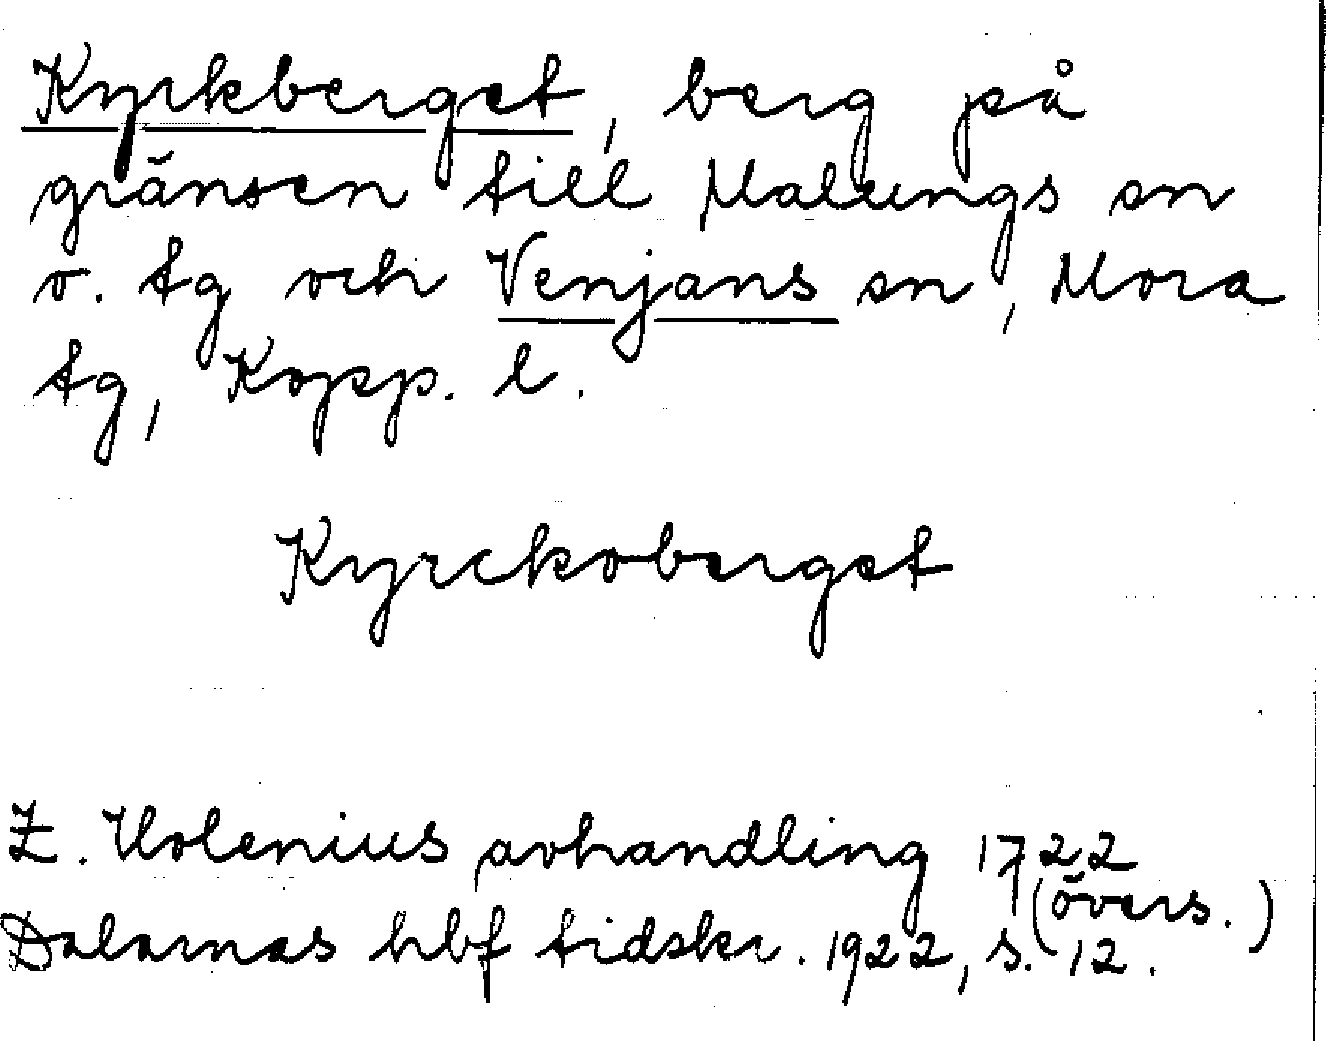 Kyrkberget, berg på
gränsen till Malungs sn
o. tg och Venjans sn, Mora
tg, Kopp. l.
Kyrckoberget
Z. Holenius avhandling 1722
(övers.)
Dalarnas hbf tidskr. 1922, s. 12.